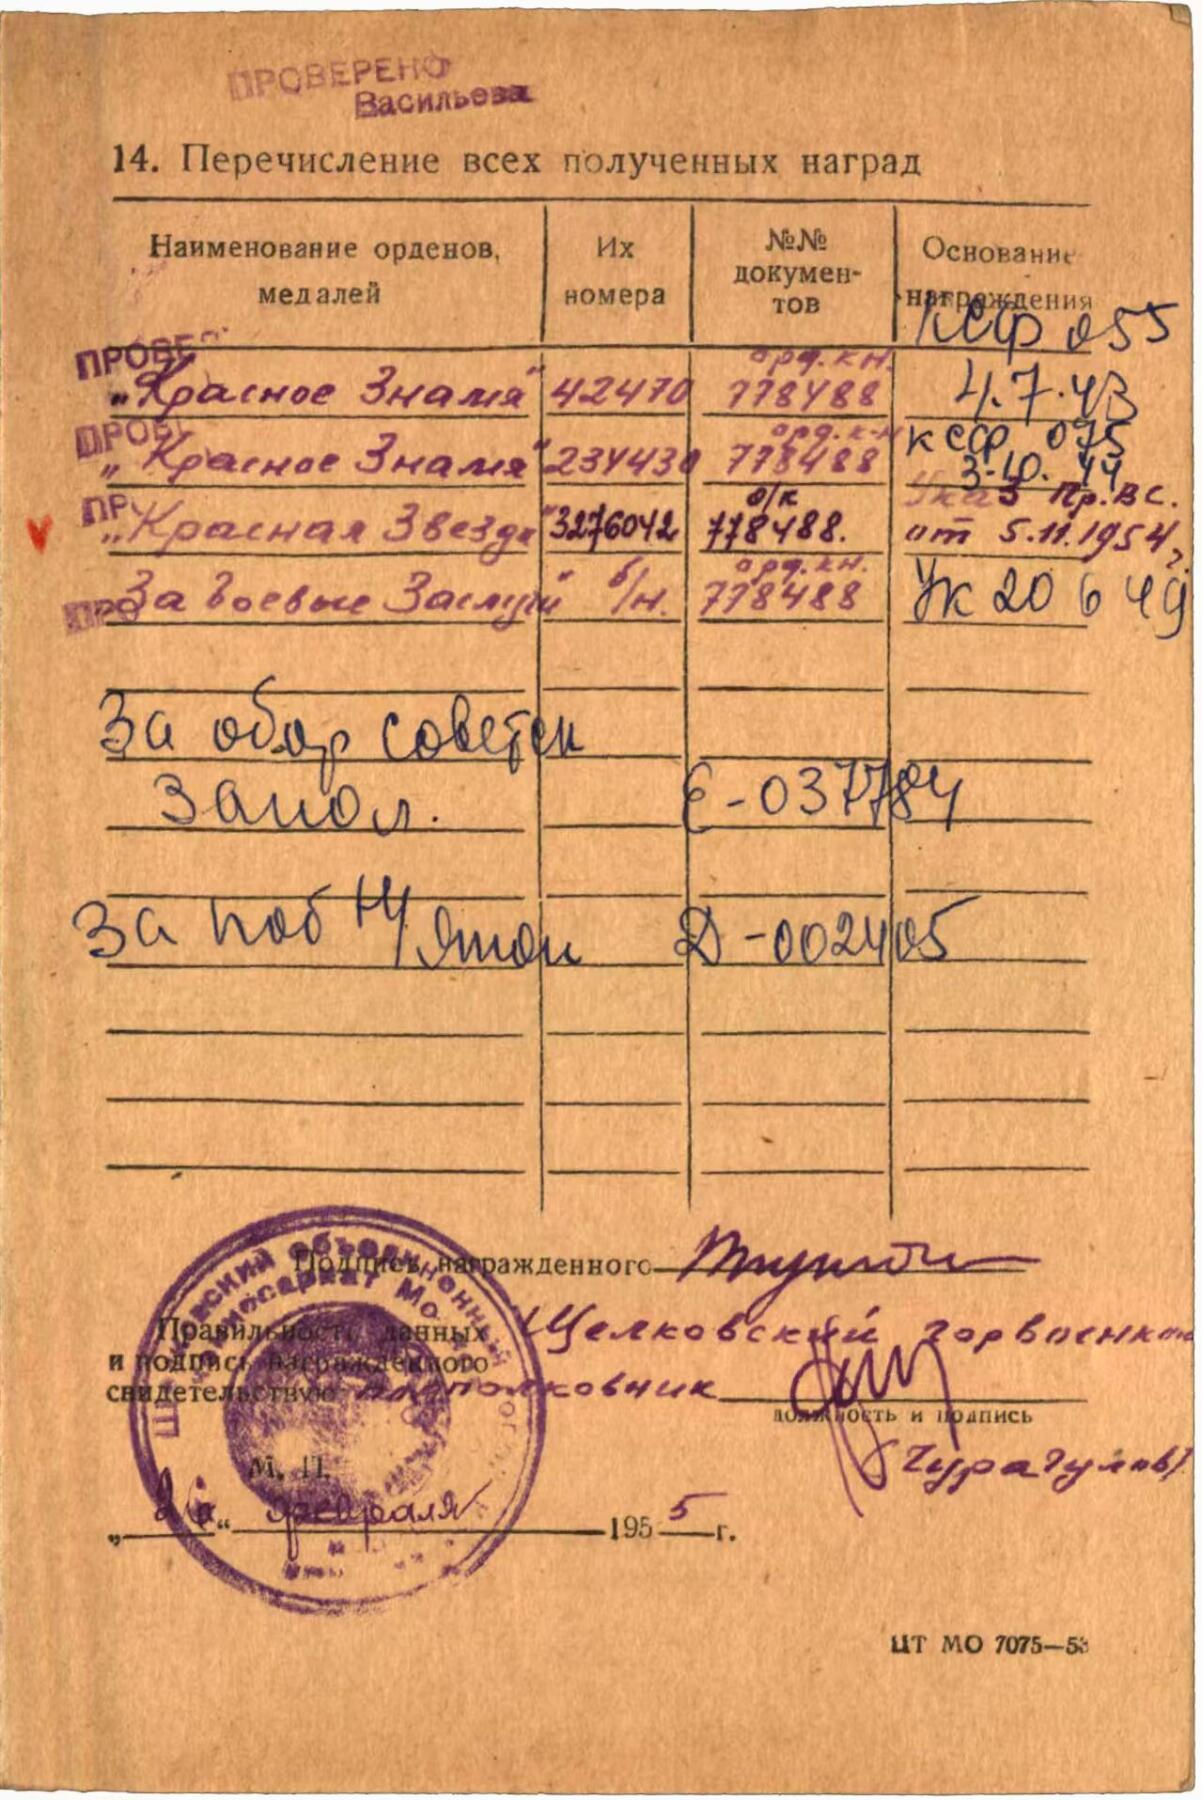 ПРОВЕРЕНО
Васильева
14. Перечисление всех полученных наград
Наименование орденов, медалей
Их номера
№№ документов
Основание награждения
КСФ 055
ПРОВЕ
орд. кн.
„Красное Знамя" 42470 778488 4.7.43
ПРОВЕ
орд. к-н КСФ 075
„Красное Знамя" 234430 778488 3-10. 44
ПР о/к Указ Пр. В С.
„Красная Звезда" 3276042 778488. от 5.11.1954 г.
орд. кн.
ПРО За боевые Заслуги" б/н. 778488 Ук 20 6 49
За обор советск
Запол. Е-037784
За поб н/Япон Д-002405
Подпись награжденного
Правильность данных Щелковский горвоенком
и подпись награжденного
свидетельствую подполковник
должность и подпись
М. П.
(Чурагулов)
„26" февраля 1955 г.
ЦТ МО 7075—53